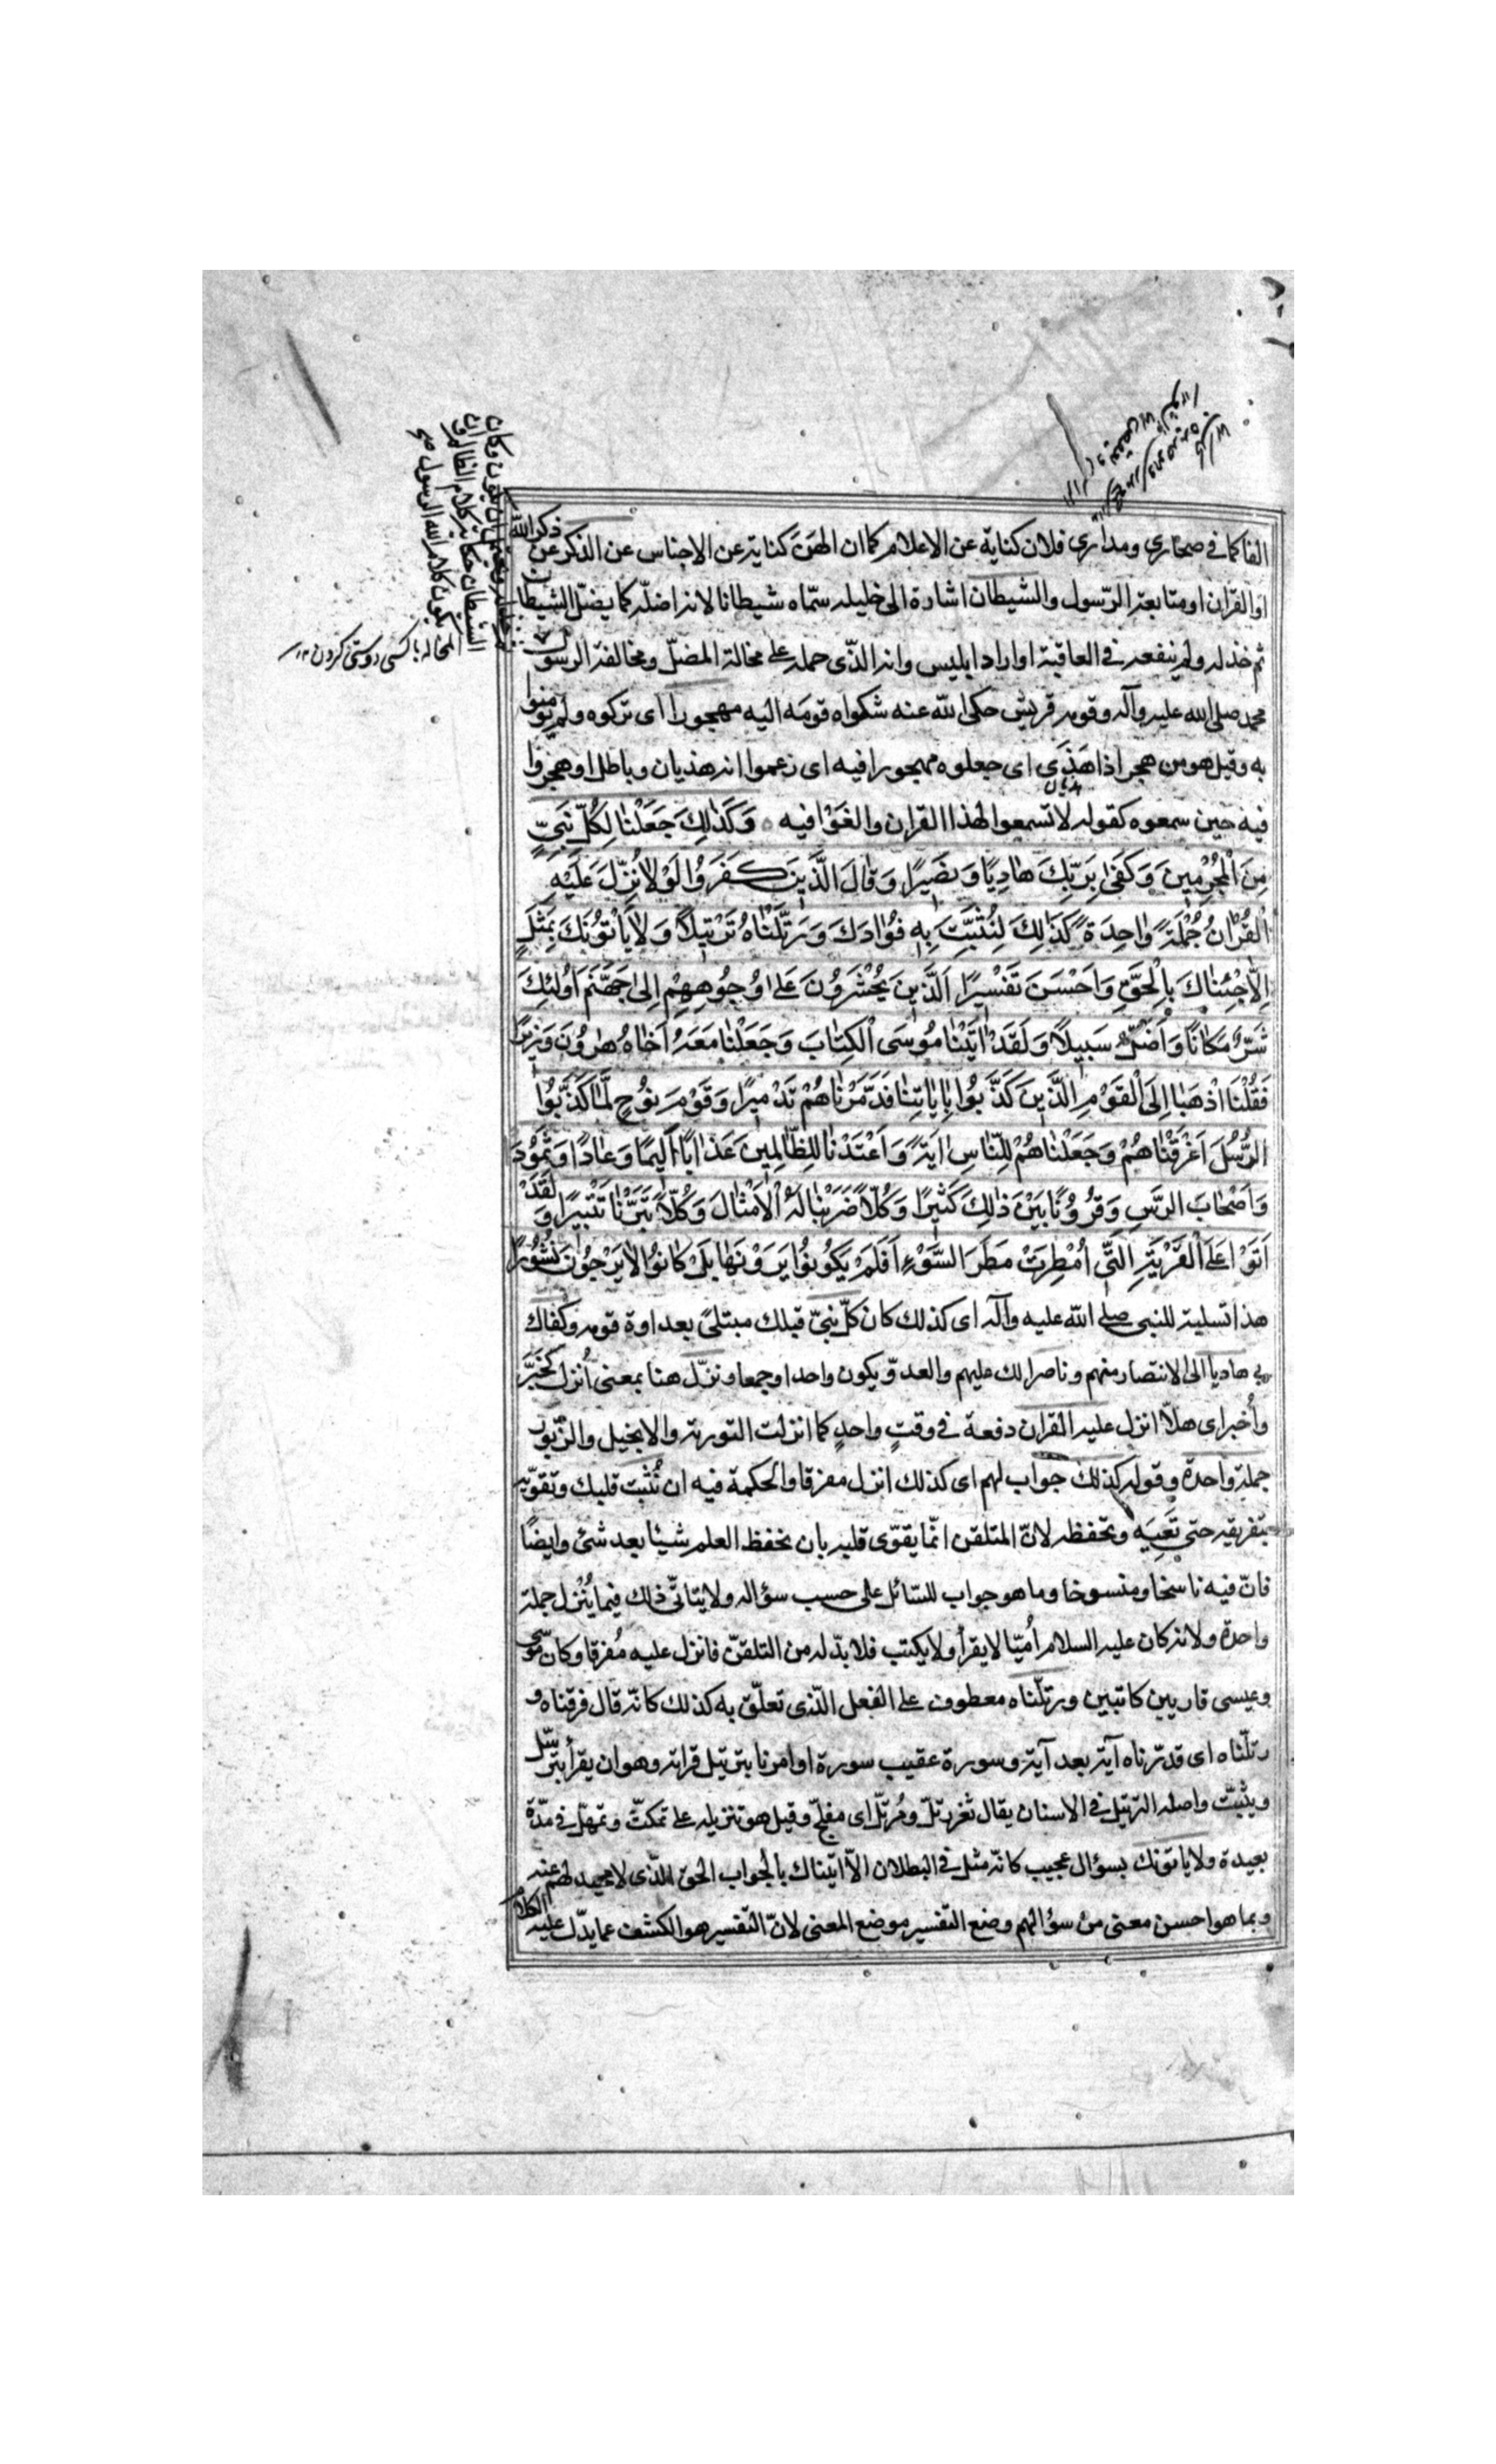 الفا كما في صحاري ومداري فلان كناية عن الاعلام كما ان الهن كناية عن الاجناس عن الذكر عن ذكر الله
او القران او متابعة الرّسول والشيطان اشارة الى خليله سمّاه شيطانا لانه اضلّه كما يضلّ الشيطان
ثم خذله ولم ينفعه في العاقبة او اراد ابليس وانه الذّي حمله على مخالة المضلّ ومخالفة الرسول
محمد صلى الله عليه وآله وقومه قريش حكى الله عنه شكواه قومَه اليه مهجورا اى تركوه ولم يؤمنوا
به وقيل هو من هجر اذا هَذَى اى جعلوه مهجورا فيه اى زعموا انه هذيان وباطل او هجروا
هذيان
فيه حين سمعوه كقوله لا تسمعوا لهذا القران والغَوْا فيه ٥ وَكَذٰلِكَ جَعَلْنٰا لِكُلِّ نَبِيٍّ
مِنَ الْمُجْرِمِينَ وَكَفىٰ بِرَبِّكَ هٰادِيًا وَنَصِيرًا وَقٰالَ الَّذِينَ كَفَرُوا لَوْلاٰ نُزِّلَ عَلَيْهِ
الْقُرْاٰنُ جُمْلَةً وٰاحِدَةً كَذٰلِكَ لِنُثَبِّتَ بِهِ فُؤٰادَكَ وَرَتَّلْنٰاهُ تَرْتِيلاً وَلاٰ يَاْتُونَكَ بِمَثَلٍ
اِلاّٰ جِئْنٰاكَ بِالْحَقِّ وَاَحْسَنَ تَفْسِيرًا اَلَّذِينَ يُحْشَرُونَ عَلىٰ وُجُوهِهِمْ اِلىٰ جَهَنَّمَ اُولٰئِكَ
شَرٌّ مَكٰانًا وَاَضَلُّ سَبِيلاً وَلَقَدْ اٰتَيْنٰا مُوسَى الْكِتٰابَ وَجَعَلْنٰا مَعَهُ اَخٰاهُ هٰرُونَ وَزِيرًا
فَقُلْنَا اذْهَبٰا اِلَى الْقَوْمِ الَّذِينَ كَذَّبُوا بِاٰيٰاتِنٰا فَدَمَّرْنٰاهُمْ تَدْمِيرًا وَقَوْمَ نوُحٍ لَمّٰا كَذَّبُوا
الرُّسُلَ اَغْرَقْنٰاهُمْ وَجَعَلْنٰاهُمْ لِلنّٰاسِ اٰيَةً وَاَعْتَدْنٰا لِلظّٰالِمِينَ عَذٰابًا اَلِيمًا وَعٰادًا وَثَمُودَ
وَاَصْحٰابَ الرَّسِّ وَقُرُونًا بَيْنَ ذٰلِكَ كَثِيرًا وَكُلاًّ ضَرَبْنٰا لَهُ الْاَمْثٰالَ وَكُلاًّ تَبَّرْنٰا تَتْبِيرًا وَلَقَدْ
اَتَوْا عَلَى الْقَرْيَةِ الَّتِي اُمْطِرَتْ مَطَرَ السَّوْءِ اَفَلَمْ يَكُونُوا يَرَوْنَهٰا بَلْ كٰانُوا لاٰ يَرْجُونَ نُشُورًا
هذا تسلية للنبى صلى الله عليه وآله اى كذلك كان كلّ نبيّ قبلك مبتلىً بعداوة قومه وكفاك
بي هاديا الى الانتصار منهم وناصرا لك عليهم والعدوّ يكون واحدا وجمعا ونزّل هنا بمعنى اُنزل كخَبَّر
واُخبر اى هلاّ انزل عليه القران دفعة في وقتٍ واحدٍ كما انزلت التورية والانجيل والزّبور
جملة واحدة وقوله كذلك جواب لهم اى كذلك انزل مفرقا والحكمة فيه ان نُثبت قلبك وتقوّيه
بتفريقه حتى تَعِيَه وتحفظه لانّ المتلقن انّما يقوّى قلبه بان يحفظ العلم شيئا بعد شئ وايضًا
فانّ فيه ناسخا ومنسوخا وما هو جواب للسّائل على حسب سؤاله ولا يتاتّى ذلك فيما يُنْزل جملة
واحدة ولانه كان عليه السلام اُميّا لا يقرأ ولا يكتب فلا بدّ له من التلقنّ فانزل عليه مُفرقا وكان موسى
وعيسى قاريين كاتبين ورتلّناه معطوف على الفعل الّذى تعلّق به كذلك كانّه قال فرقناه و
رتلّناه اى قدّرناه آية بعد آية وسورة عقيب سورة او امرنا بترتيل قراته وهو ان يقرأ بترسّل
ويثبّت واصله الترتيل في الاسنان يقال ثغر رتلّ ومُرتلّ اى مفلّج وقيل هو تنزيله على تمكثّ وتمهلّ في مدّة
بعيدة ولا ياتونك بسؤال عجيب كانّه مثل في البطلان الاّ اتيناك بالجواب الحقّ الّذى لا محيد لهم عنه
وبما هو احسن معنى من سؤالهم وضع التّفسير موضع المعنى لانّ التّفسير هو الكشف عما يدّل عليه الكلام
ان يكون وكان
الشيطان حكاية كلام الظالم وان
يكون كلام الله الرسول صح
المخاله با كسى دوستى كردن ١٢